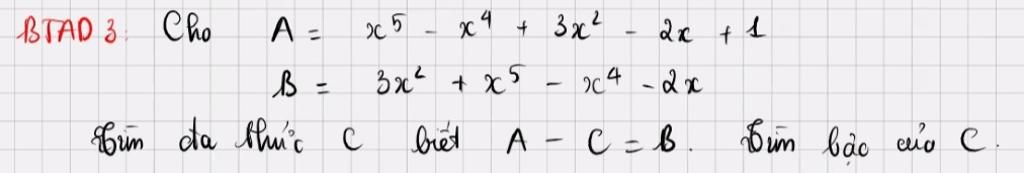 BTAD 3: Cho A = x⁵ - x⁴ + 3x² - 2x + 1
B = 3x² + x⁵ - x⁴ - 2x
Tìm đa thức C biết A - C = B. Tìm bậc của C.